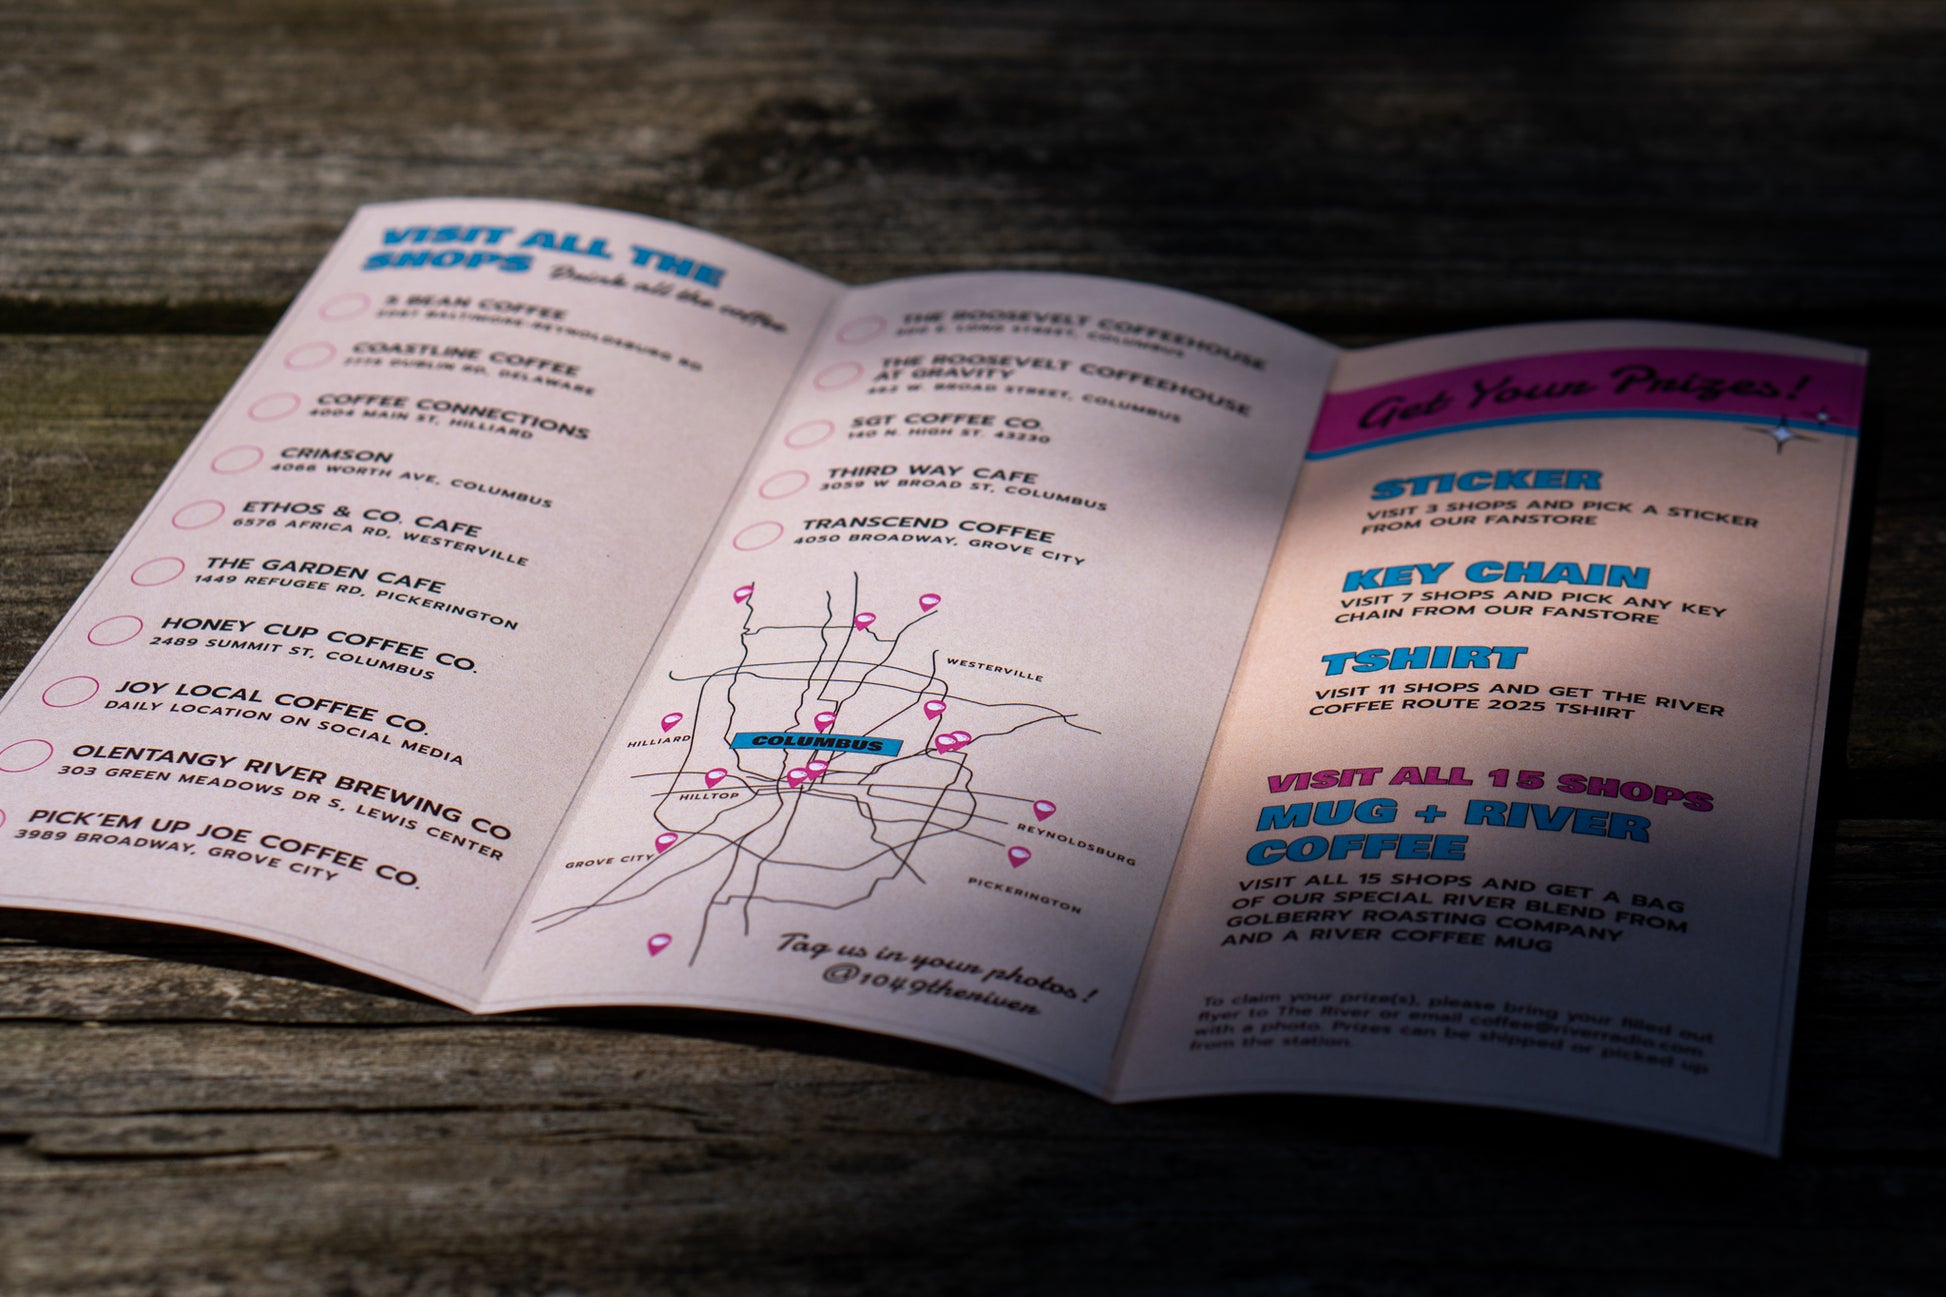 VISIT ALL THE
SHOPS Drink all the coffee
2 BEAN COFFEE
BALTIMORE-REYNOLDSBURG RD
COASTLINE COFFEE
DUBLIN RD, DELAWARE
COFFEE CONNECTIONS
4004 MAIN ST, HILLIARD
CRIMSON
4066 WORTH AVE, COLUMBUS
ETHOS & CO. CAFE
6576 AFRICA RD, WESTERVILLE
THE GARDEN CAFE
1449 REFUGEE RD, PICKERINGTON
HONEY CUP COFFEE CO.
2489 SUMMIT ST, COLUMBUS
JOY LOCAL COFFEE CO.
DAILY LOCATION ON SOCIAL MEDIA
OLENTANGY RIVER BREWING CO
303 GREEN MEADOWS DR S, LEWIS CENTER
PICK'EM UP JOE COFFEE CO.
3989 BROADWAY, GROVE CITY
THE ROOSEVELT COFFEEHOUSE
300 E. LONG STREET, COLUMBUS
THE ROOSEVELT COFFEEHOUSE
AT GRAVITY
462 W. BROAD STREET, COLUMBUS
SGT COFFEE CO.
140 N. HIGH ST. 43230
THIRD WAY CAFE
3059 W BROAD ST, COLUMBUS
TRANSCEND COFFEE
4050 BROADWAY, GROVE CITY
WESTERVILLE
HILLIARD
COLUMBUS
HILLTOP
REYNOLDSBURG
GROVE CITY
PICKERINGTON
Tag us in your photos!
@1049theriver
Get Your Prizes!
STICKER
VISIT 3 SHOPS AND PICK A STICKER
FROM OUR FANSTORE
KEY CHAIN
VISIT 7 SHOPS AND PICK ANY KEY
CHAIN FROM OUR FANSTORE
TSHIRT
VISIT 11 SHOPS AND GET THE RIVER
COFFEE ROUTE 2025 TSHIRT
VISIT ALL 15 SHOPS
MUG + RIVER
COFFEE
VISIT ALL 15 SHOPS AND GET A BAG
OF OUR SPECIAL RIVER BLEND FROM
GOLBERRY ROASTING COMPANY
AND A RIVER COFFEE MUG
To claim your prize(s), please bring your filled out
flyer to The River or email coffee@riverradio.com
with a photo. Prizes can be shipped or picked up
from the station.